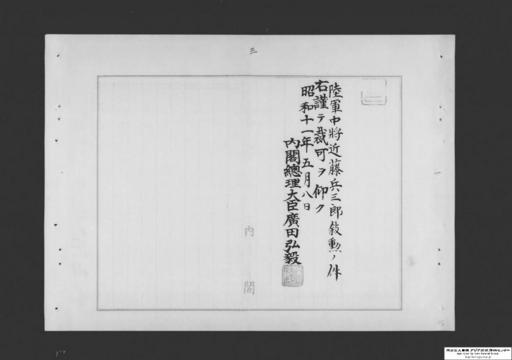 三
陸軍中將近藤兵三郎敍勲ノ件
右謹テ裁可ヲ仰ク
昭和十一年五月八日
內閣總理大臣廣田弘毅
內閣